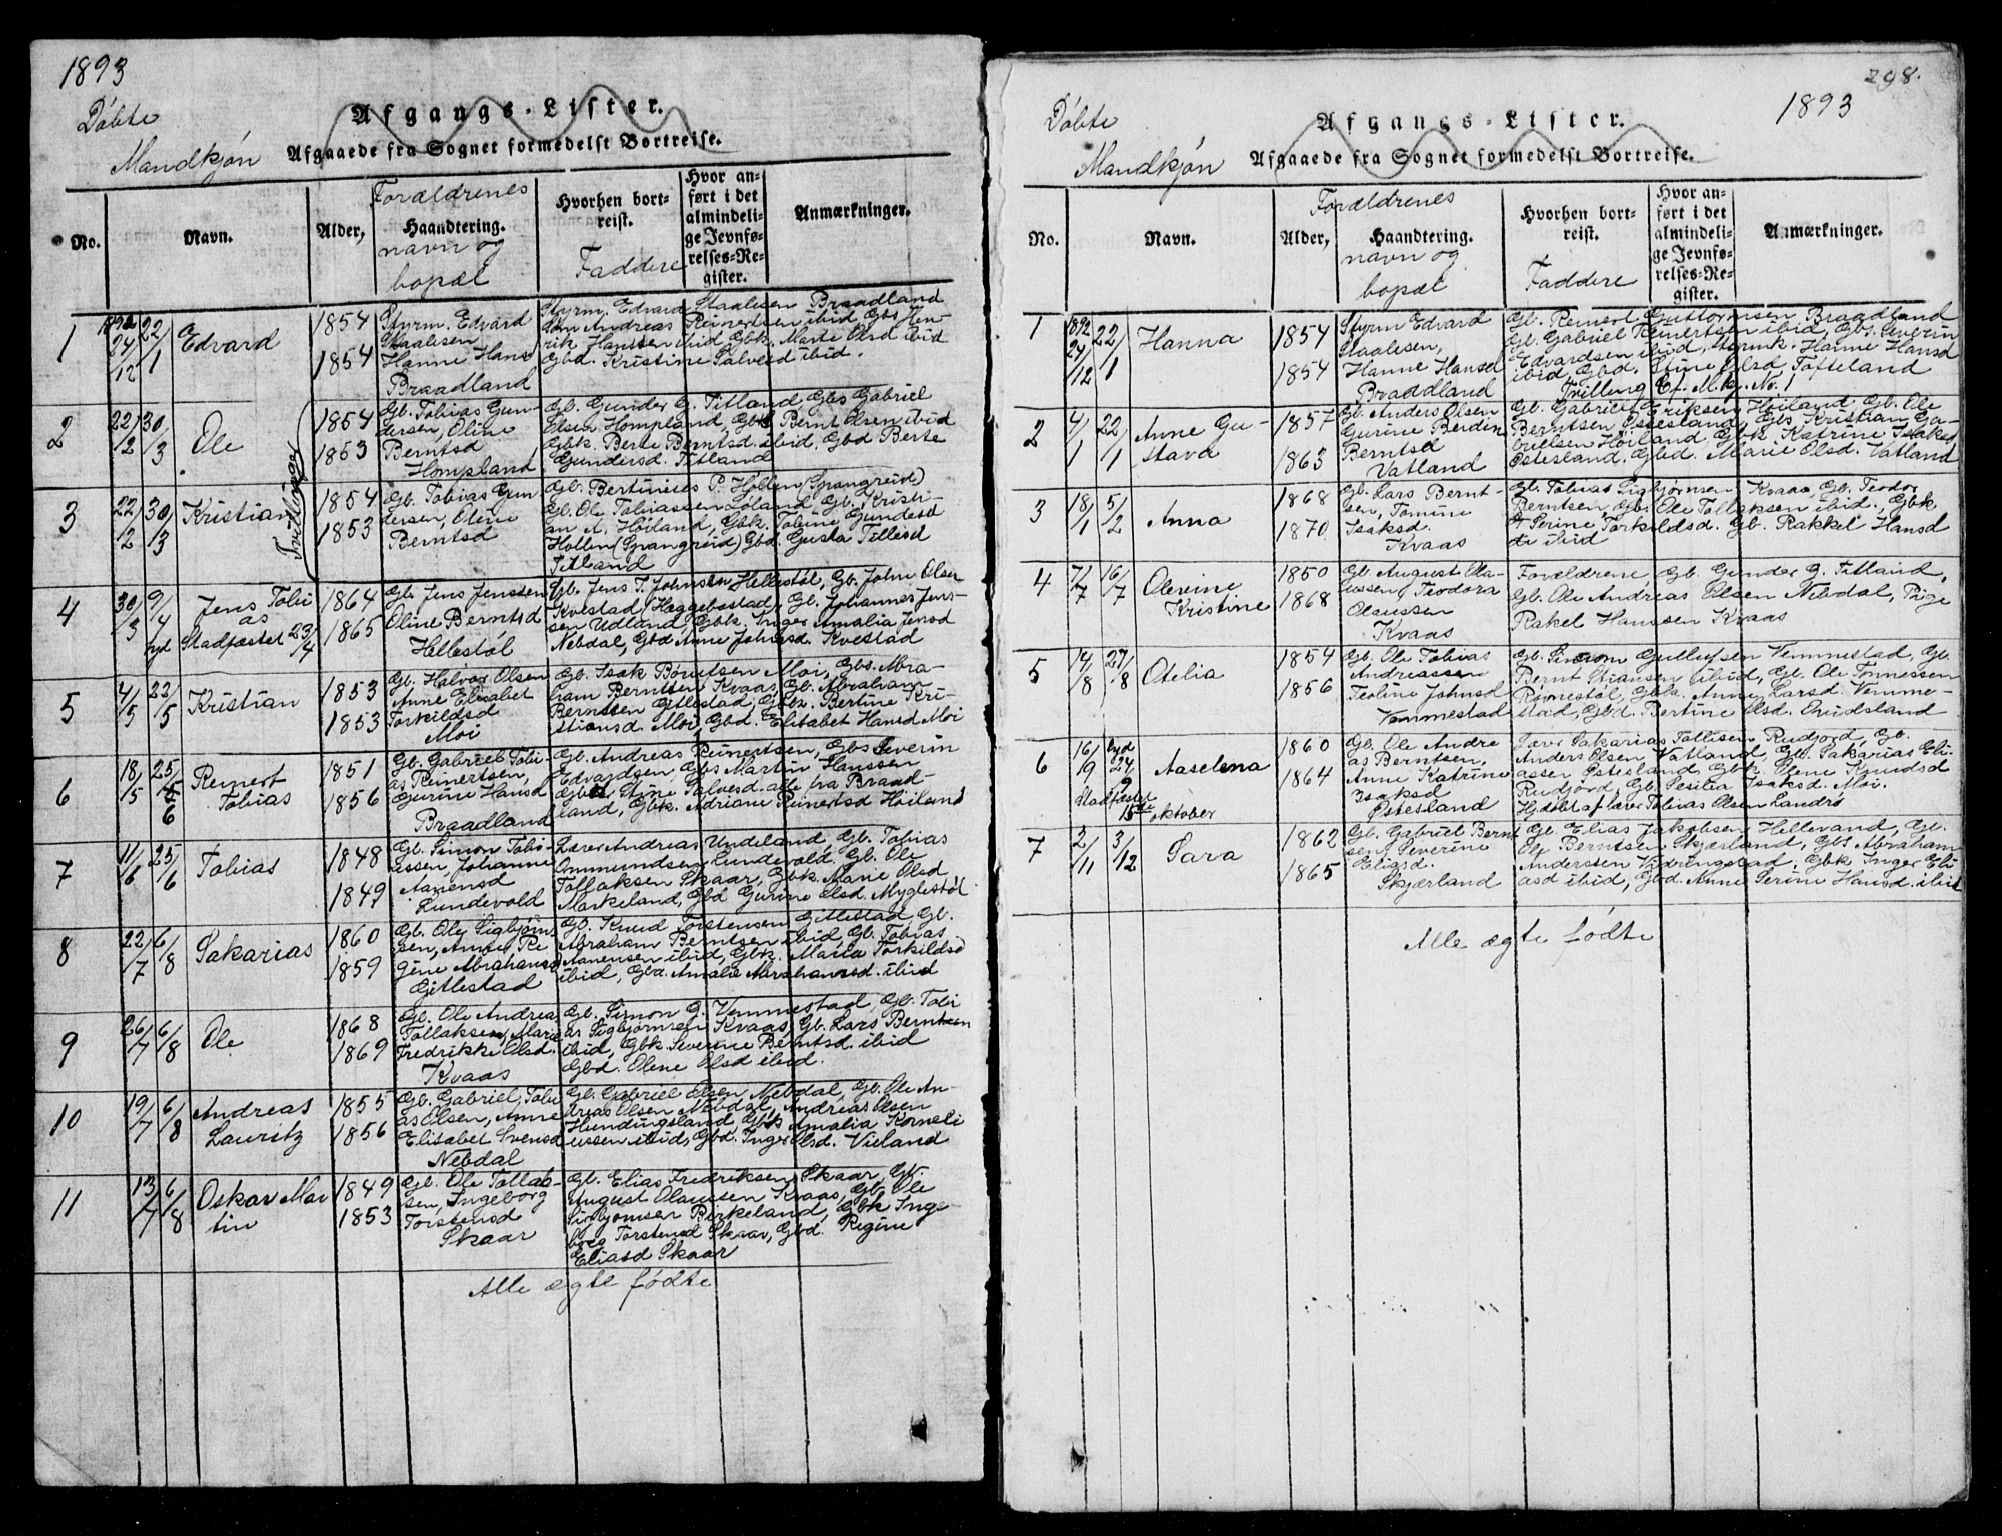 1893
Døbte
Afgangs-Lister.
Mandkjøn
Afgaaede fra Sognet formedelst Bortreise.
No.
Navn.
Alder,
Forældrenes
Haandtering.
navn og
bopæl
Hvorhen bort-
reist.
Faddere
Hvor an-
ført i det
almindeli-
ge Jevnfø-
relses-Re-
gister.
Anmærkninger.
1
1892
24/12
22/1
Edvard
1854
1854
Styrm. Edvard
Staalesen
Hanne Hans
Braadland
Styrm. Edvard Staalesen Braadland
Andreas Reinertsen ibid Gbs Hen-
rik Hanssen ibid Gbk. Marte Olsd ibid
Gbd. Kristine Salvesd ibid.
2
22/2
30/3
Ole
Tvillinger
1854
1853
Gb. Tobias Gun-
dersen, Oline
Berntsd
Hompland
Gb. Gunder G. Titland, Gbs Gabriel
Olsen Hompland, Gbs Bernt Olsen ibid
Gbk. Berte Berntsd. ibid, Gbd Berte
Gundersd. Titland
3
22/2
30/3
Kristian
1854
1853
Gb. Tobias Gun
dersen, Oline
Berntsd
Gb. Bertinius P. Hollen (Spangreid)
Gb. Ole Tobiassen Løland, Gb. Kristi-
an A. Høiland, Gbk. Tobine Gundersd
Hollen (Spangreid) Gbd. Gusta Tillesd
Titland
4
30/3
9/4
hjd
Jens Tobi
as
Stadfæstet 23/4
1864
1865
Gb. Jens Jenssen
Oline Berntsd
Hellestøl
Gb. Jens T. Johnsen Hellestøl, Gb. John Olsen
Kvestad, Heggebostad, Gb. Johannes Jens-
sen Udland, Gbk. Inger Amalia Jensd
Nebdal, Gbd Anne Johnsd. Kvestad
5
4/5
22/5
Kristian
1853
1853
Gb. Halvor Olsen
Anne Elisabet
Torkildsd
Moi
Gb. Isak Berntsen Moi, Gbs. Abra-
ham Berntsen Kvaas, Gb. Abraham
Berntsen Gitlestad, Gbk. Bertine Kri-
stiansd. Moi, Gbd. Elisabet Hansd Moi
6
18/5
25/6
Reinert
Tobias
1851
1856
Gb. Gabriel Tobi-
as Reinertsen,
Gurine Hansd
Braadland
Gb. Andreas Reinertsen, Gbs Severin
Edvardsen, Gbs Martin Hanssen
Gbd Stine Salvesd. alle fra Braad-
land, Gbk. Adriane Reinertsd Høiland
7
11/6
25/6
Tobias
1848
1849
Gb. Simon Tobi-
assen Johanne
Aanensd
Lundevold
Lærer Andreas Undeland, Gb. Tobias
Ommundsen Lundevold, Gb. Ole
Tollaksen Skaar, Gbk. Marie Olsd
Markeland, Gbd Gurine Olsd. Myglestøl
8
22/7
6/8
Sakarias
1860
1859
Gb. Ole Sigbjørn-
sen, Anne Re
gine Abrahamsd
Gitlestad
Gb. Knud Torstensen Gitlestad, Gb.
Abraham Berntsen ibid, Gb. Tobias
Aanensen ibid, Gbk. Marta Torkildsd
ibid, Gbd. Amalie Abrahamsd. ibid
9
26/7
6/8
Ole
1868
1869
Gb. Ole Andreas
Tollaksen, Marie
Fredrikke Olsd.
Kvaas
Gb. Simon G. Vemmestad, Gb. Tobi
as Sigbjørnsen Kvaas, Gb. Lars Berntsen
ibid, Gbk. Severine Berntsd. ibid
Gbd. Olene Olsd ibid.
10
19/7
6/8
Andreas
Lauritz
1855
1856
Gb. Gabriel Tobi
as Olsen, Anne
Elisabet Svensd
Nebdal
Gb. Gabriel Olsen Nebdal, Gb. Ole An-
dreas Olsen Nebdal, Andreas Olsen
Hundingsland, Gbk Amalia Korneli
ussen ibid, Gbd. Inger Olsd. Vieland
11
13/7
6/8
Oskar Mar
tin
1849
1853
Gb. Ole Tollak-
sen, Ingeborg
Torstensd
Skaar
Gb. Elias Fredriksen Skaar, Gb.
August Olaussen Kvaas, Gb. Ole
Sigbjørnsen Birkeland, Gbk Inge-
borg Torstensd Skaar, Gbd. Regine
Eliasd Skaar
Alle ægte fødte
298.
1893
Døbte
Afgangs-Lister.
Mandkjøn
Afgaaede fra Sognet formedelst Bortreise.
No.
Navn.
Alder,
Forældrenes
Haandtering.
navn og
bopæl
Hvorhen bort-
reist.
Faddere
Hvor an-
ført i det
almindeli-
ge Jevnfø-
relses-Re-
gister.
Anmærkninger.
1
1892
24/12
22/1
Hanna
1854
1854
Styrm Edvard
Staalesen,
Hanne Hansd
Braadland
Gb. Reinert Guttormsen Braadland
Gb. Gabriel Reinertsen ibid, Gbs. Severin
Edvardsen ibid, Styrmk. Hanne Hansd
ibid, Gbd. Stine Olsd, Tofteland
Tvilling Cf. M.kj. No. 1
2
4/1
22/1
Anne Gu-
stava
1857
1863
Gb. Anders Olsen
Gurine Berdin
Berntsd
Vatland
Gb. Gabriel Eriksen Høiland Gb. Ole
Berntsen Østesland, Gbs Kristian Ga-
brielsen Høiland, Gbk Katrine Isaksd
Østesland. Gbd. Marie Olsd. Vatland
3
18/1
5/2
Anna
1868
1870
Gb. Lars Bernt-
sen, Tomine
Isaksd.
Kvaas
Gb. Tobias Sigbjørnsen Kvaas, Gb. Teodor
Berntsen Gb. Ole Tollaksen ibid., Gbk
Serine Torkildsd. Gb. Rakkel Hansd
ibid
4
7/7
16/7
Olevine
Kristine
1850
1868
Gb. August Ola-
ussen, Teodora
Olaussen
Kvaas
Forældrene, Gb. Gunder G. Titland,
Gb. Ole Andreas Olsen Nebdal, Pige
Rakel Hanssen Kvaas
5
14/8
27/8
Otelia
1854
1856
Gb. Ole Tobias
Andreassen
Teoline Johnsd
Vemmestad
Gb. Simon Gullufsen Vemmestad, Gb.
Bernt Stiansen ibid, Gb. Ole Tønnessen
Rømestøl, Gbk. Anne Larsd. Vemme-
stad, Gbd. Bertine Olsd. Quidsland
6
16/9
hjd
24/9
Aaselena
Stadfæstet
15de oktober
1860
1864
Gb. Ole Andre
as Berntsen,
Anne Katrine
Isaksd
Østesland
Lærer Sakarias Tollisen Rudjord, Gb.
Anders Olsen Vatland, Gb. Sakarias Eli-
assen Østesland, Gbk. Olene Knudsd
Rudjord, Gb. Sesilia Isaksd. Moi.
Hjdøbt af lærer Tobias Olsen Landrø
7
2/11
3/12
Sara
1862
1865
Gb. Gabriel Bernt
sen Severine
Eliasd.
Skjærland
Gb. Elias Jakobsen Hellevand, Gb.
Ole Berntsen Skjærland, Gbs Abraham
Andersen Vidringstad, Gbk Inger Eli-
asd ibid, Gbd. Anne Serine Hansd. ibid
Alle ægte fødte